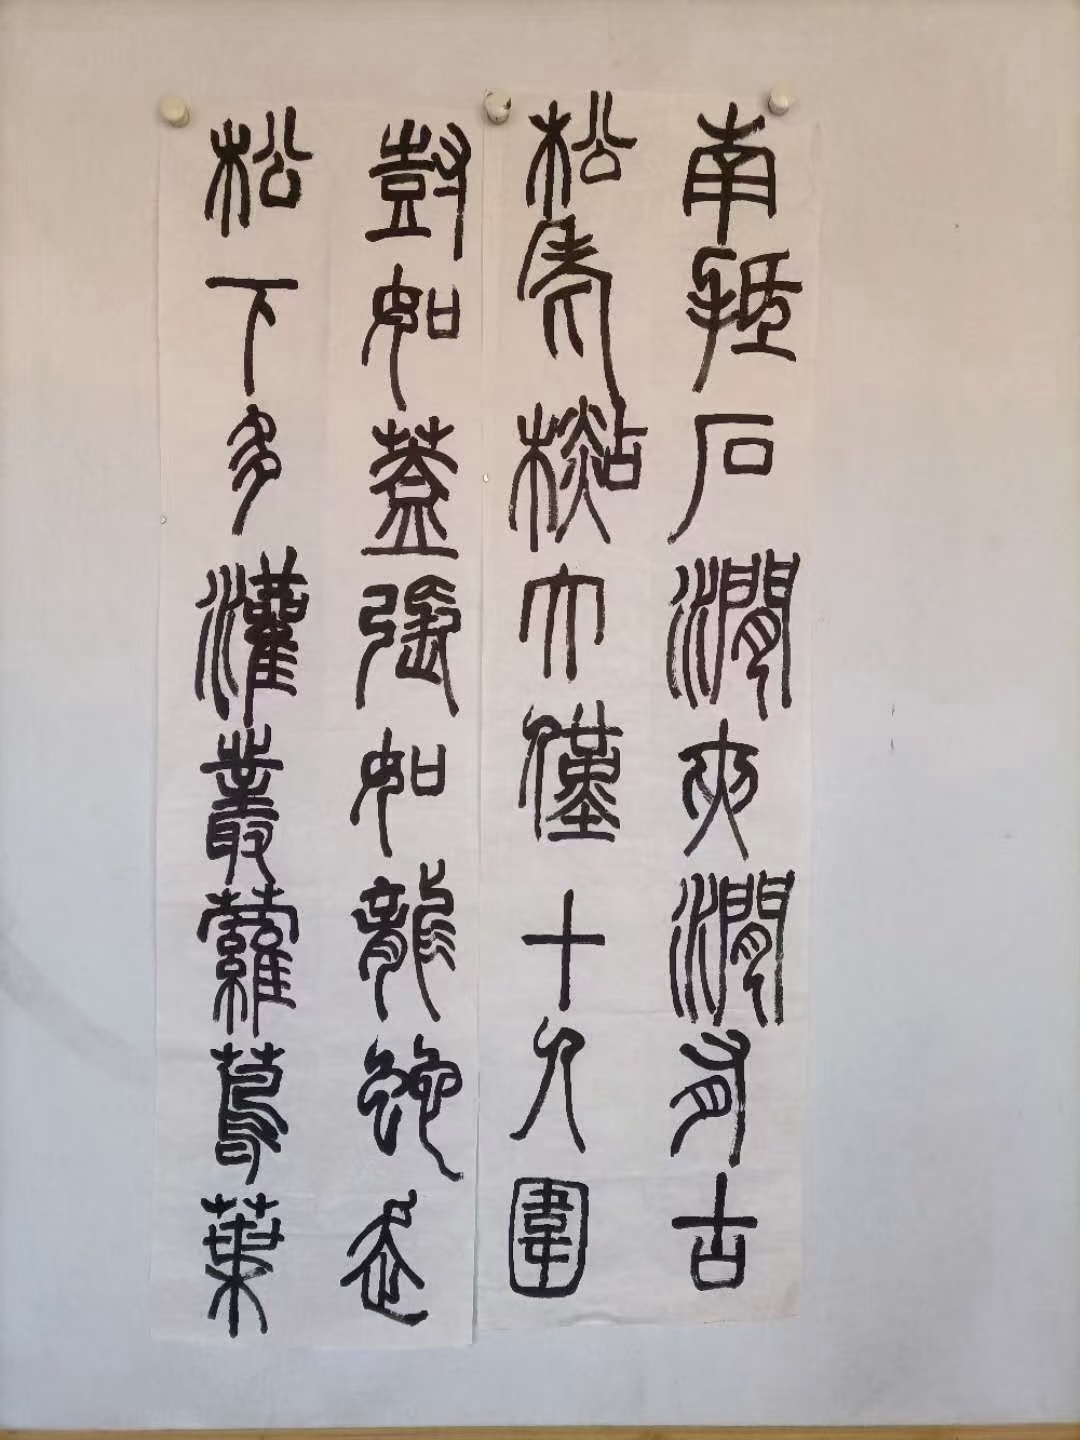 南抵石澗夾澗有古
松老檆大僅十人圍
尌如蓋張如龍蛇走
松下多灌叢蘿蔦葉